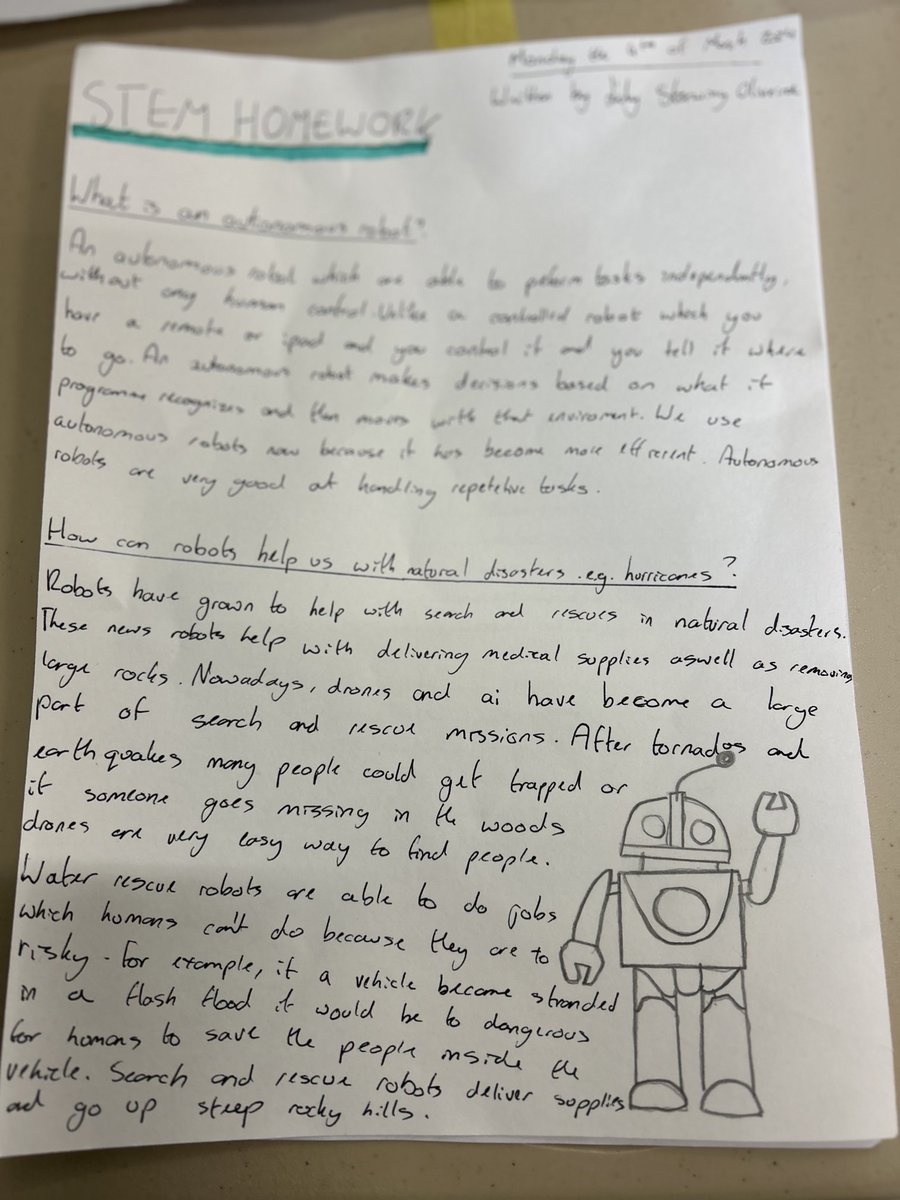 Monday the 6th of
Written by
STEM HOMEWORK
What is an autonomous robot?
An autonomous robot which are able to peform tasks independently,
without any human control. Unlike a controlled robot which you
have a remote or ipad and you control it and you tell it where
to go. An autonomous robot makes decisions based on what it
programme recognizes and then moves with that enviroment. We use
autonomous robots now because it has become more effrecent. Autonomous
robots are very good at handling repetetive tasks.
How can robots help us with natural disasters .e.g. hurricanes?
Robots have grown to help with search and rescues in natural disasters.
These news robots help with delivering medical supplies aswell as removing
large rocks. Nowadays, drones and ai have become a large
part of search and rescue missions. After tornados and
earthquakes many people could get trapped or
if someone goes missing in the woods
drones are very easy way to find people.
Water rescue robots are able to do jobs
which humans can't do because they are to
risky. For example, if a vehicle become stranded
in a flash flood it would be to dangerous
for humans to save the people inside the
vehicle. Search and rescue robots deliver supplies
and go up steep rocky hills.